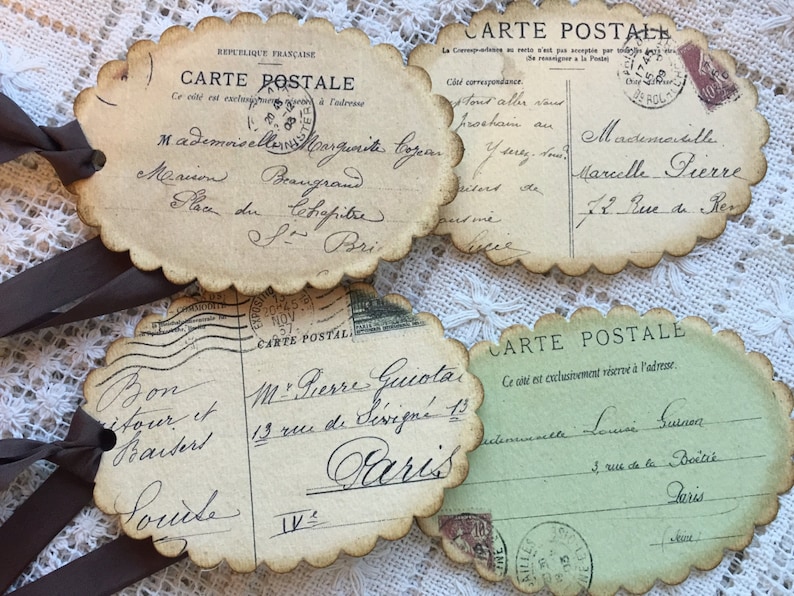 RÉPUBLIQUE FRANÇAISE
CARTE POSTALE
Ce côté est exclusivement réservé à l'adresse
Mademoiselle Marguerite
Maison Beaugrand
Place du Chapitre
St Bri
CARTE POSTALE
La Correspondance au recto n'est pas acceptée par tous les
(Se renseigner à la Poste)
Côté correspondance.
tout aller vous
prochain au
Y serez-vous?
Baisers de
Lucie
Mademoiselle
Marcelle Pierre
72 Rue de Ren
COMMODITÉ
NOV
CARTE POSTALE
Bon
retour et
Baisers
Louise
Mr Pierre Guiotat
13 rue de Sévigné 13
Paris
IVe
CARTE POSTALE
Ce côté est exclusivement réservé à l'adresse.
Mademoiselle Louise Guenon
3, rue de la Boëtie
Paris
(Seine)